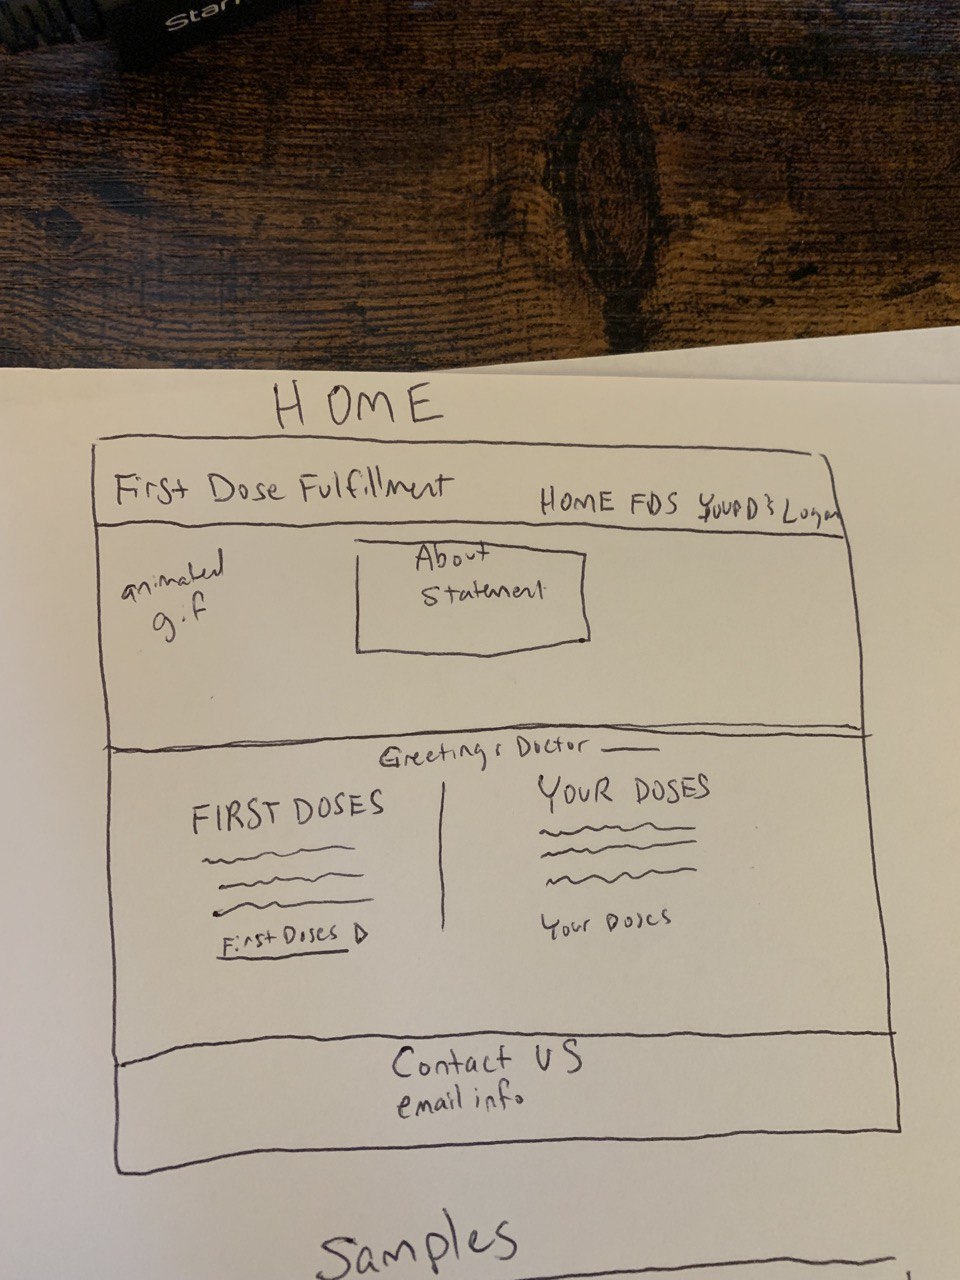 Star
HOME
First Dose Fulfillment
HOME FDS Login
animated
gif
About
Statement
Greetings Doctor
FIRST DOSES
YOUR DOSES
First Doses
Your Doses
Contact US
email info
Samples